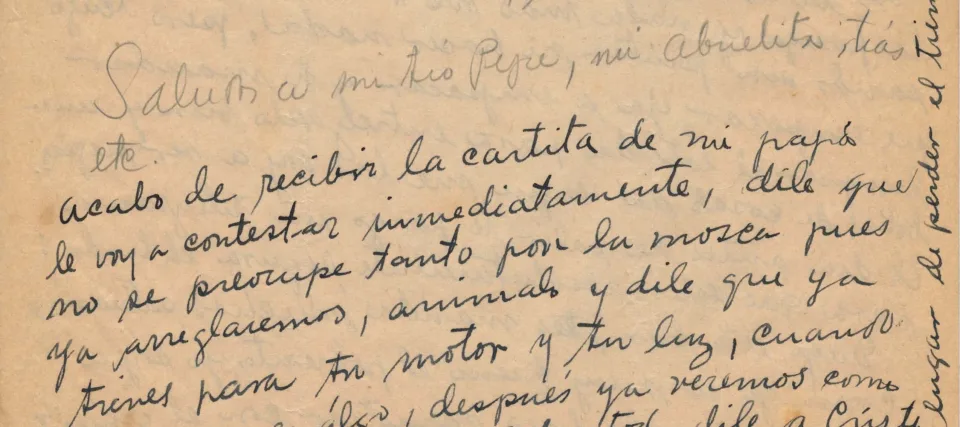 Saludos a mi tio Pepe, mi Abuelita, tías
etc.
acabo de recibir la cartita de mi papá
le voy a contestar inmediatamente, dile que
no se preocupe tanto por la mosca pues
ya arreglaremos, animalo y dile que ya
tienes para tu motor y tu luz, cuando
algo, después ya veremos como
dile a
lugar de perder el